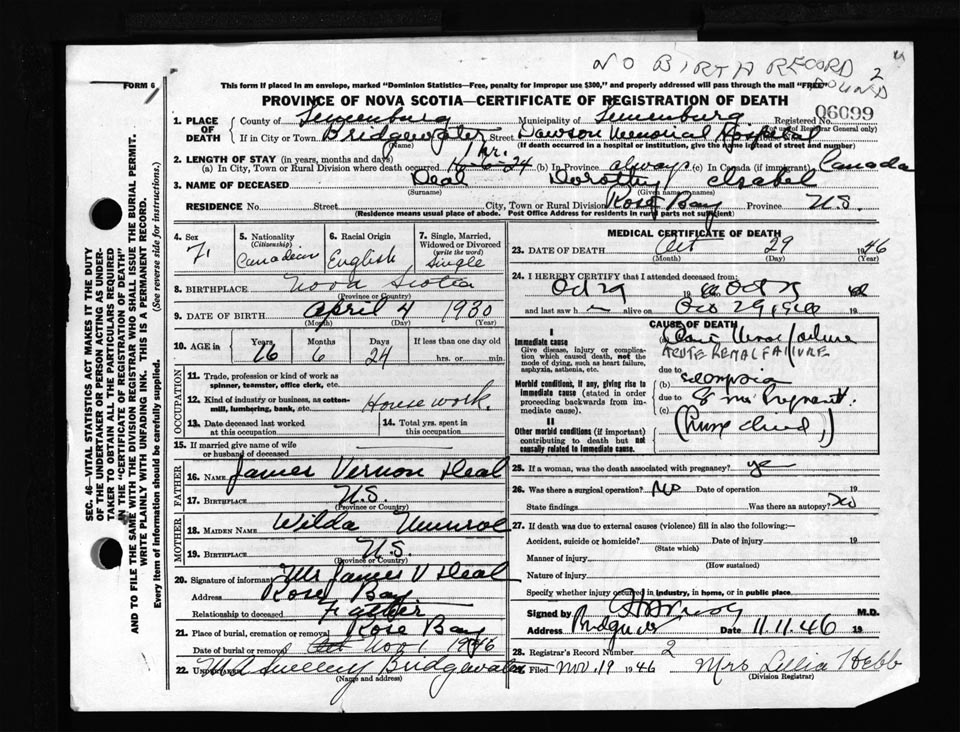 NO BIRTH RECORD
FOUND
2
FORM 6
This form if placed in an envelope, marked "Dominion Statistics—Free, penalty for improper use $300," and properly addressed will pass through the mail "FREE"
PROVINCE OF NOVA SCOTIA—CERTIFICATE OF REGISTRATION OF DEATH
06099
1. PLACE OF DEATH
County of Lunenburg Municipality of Lunenburg Registered No.
(For use of Registrar General only)
If in City or Town Bridgewater Street Dawson Memorial Hospital
(Name) (If death occurred in a hospital or institution, give the name instead of street and number)
2. LENGTH OF STAY (in years, months and days) 1 hr.
(a) In City, Town or Rural Division where death occurred (b) In Province always (c) In Canada (if immigrant) Canada
3. NAME OF DECEASED Deal Dorothy Isabel
(Surname) (Given name or names)
RESIDENCE No. Street City, Town or Rural Division Rose Bay Province N.S.
(Residence means usual place of abode. Post Office Address for residents in rural parts not sufficient)
4. Sex
F.
5. Nationality
(Citizenship)
Canadian
6. Racial Origin
English
7. Single, Married, Widowed or Divorced
(write the word)
Single
8. BIRTHPLACE Nova Scotia
(Province or Country)
9. DATE OF BIRTH April 4 1930
(Month) (Day) (Year)
10. AGE in Years Months Days If less than one day old
16 6 24 hrs. or min.
OCCUPATION
11. Trade, profession or kind of work as spinner, teamster, office clerk, etc.
12. Kind of industry or business, as cotton-mill, lumbering, bank, etc. Housework.
13. Date deceased last worked at this occupation
14. Total yrs. spent in this occupation
15. If married give name of wife or husband of deceased
FATHER
16. NAME James Vernon Deal
17. BIRTHPLACE N.S.
(Province or Country)
MOTHER
18. MAIDEN NAME Wilda Munroe
19. BIRTHPLACE N.S.
(Province or Country)
20. Signature of informant Mr James V Deal
Address Rose Bay
Relationship to deceased Father
21. Place of burial, cremation or removal Rose Bay
Date of burial or removal Oct Nov 1 1946
22. UNDERTAKER Sweeny Bridgewater
(Name and address)
MEDICAL CERTIFICATE OF DEATH
23. DATE OF DEATH Oct 29 1946
(Month) (Day) (Year)
24. I HEREBY CERTIFY that I attended deceased from:
Oct 29 19
and last saw h alive on 19
CAUSE OF DEATH
I
Immediate cause
Give disease, injury or complication which caused death, not the mode of dying, such as heart failure, asphyxia, asthenia, etc.
ACUTE RENAL FAILURE
due to
Morbid conditions, if any, giving rise to immediate cause (stated in order proceeding backwards from immediate cause).
(b)
due to
(c) Pregnant.
II
Other morbid conditions (if important) contributing to death but not causally related to immediate cause.
25. If a woman, was the death associated with pregnancy? yes
26. Was there a surgical operation? No Date of operation 19
State findings Was there an autopsy? No
27. If death was due to external causes (violence) fill in also the following:—
Accident, suicide or homicide? Date of injury 19
(State which)
Manner of injury
(How sustained)
Nature of injury
Specify whether injury occurred in industry, in home, or in public place.
Signed by M.D.
Address Bridgewater Date 11.11.46 19
28. Registrar's Record Number 2
Filed Nov. 19 1946 Mrs Lellia Hebb
(Division Registrar)
SEC. 46—VITAL STATISTICS ACT MAKES IT THE DUTY
OF THE UNDERTAKER OR PERSON ACTING AS UNDER-
TAKER TO OBTAIN ALL THE PARTICULARS REQUIRED
IN THE "CERTIFICATE OF REGISTRATION OF DEATH"
AND TO FILE THE SAME WITH THE DIVISION REGISTRAR WHO SHALL ISSUE THE BURIAL PERMIT.
WRITE PLAINLY WITH UNFADING INK. THIS IS A PERMANENT RECORD.
Every item of information should be carefully supplied. (See reverse side for instructions.)